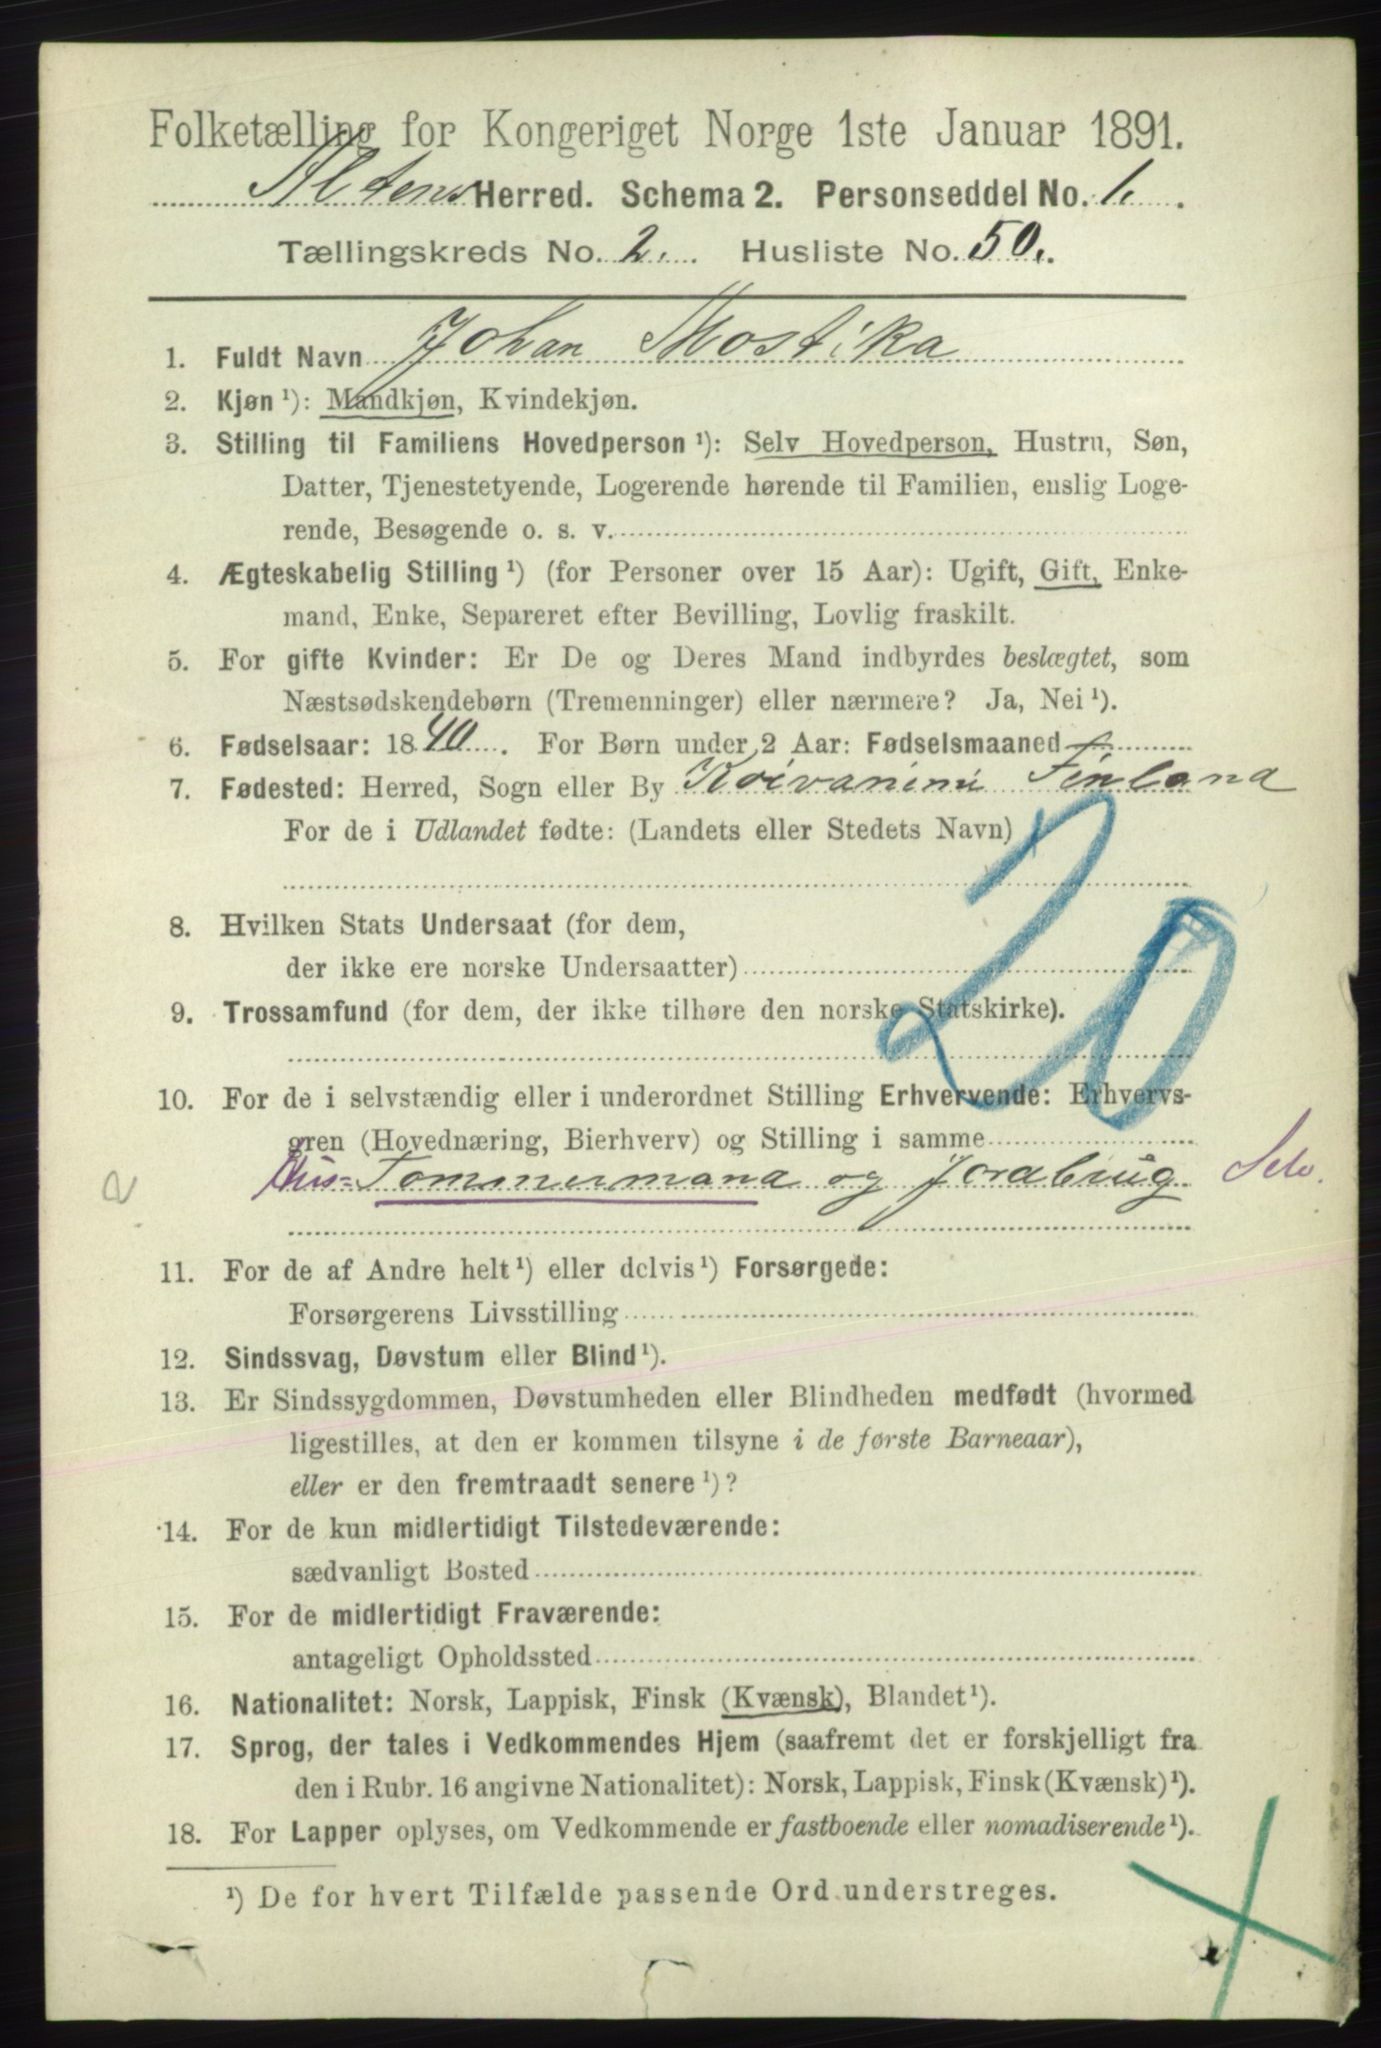 Folketælling for Kongeriget Norge 1ste Januar 1891.
Altens Herred. Schema 2. Personseddel No. 1.
Tællingskreds No. 2. Husliste No. 50.
1. Fuldt Navn Johan Mostika
2. Kjøn ¹): Mandkjøn, Kvindekjøn.
3. Stilling til Familiens Hovedperson ¹): Selv Hovedperson, Hustru, Søn,
Datter, Tjenestetyende, Logerende hørende til Familien, enslig Loge-
rende, Besøgende o. s. v.
4. Ægteskabelig Stilling ¹) (for Personer over 15 Aar): Ugift, Gift, Enke-
mand, Enke, Separeret efter Bevilling, Lovlig fraskilt.
5. For gifte Kvinder: Er De og Deres Mand indbyrdes beslægtet, som
Næstsødskendebørn (Tremenninger) eller nærmere? Ja, Nei ¹).
6. Fødselsaar: 1840. For Børn under 2 Aar: Fødselsmaaned
7. Fødested: Herred, Sogn eller By Koivaniemi Finland
For de i Udlandet fødte: (Landets eller Stedets Navn)
20
8. Hvilken Stats Undersaat (for dem,
der ikke ere norske Undersaatter)
9. Trossamfund (for dem, der ikke tilhøre den norske Statskirke).
10. For de i selvstændig eller i underordnet Stilling Erhvervende: Erhvervs-
gren (Hovednæring, Bierhverv) og Stilling i samme
2 Hus= Tommermand og Jordbrug Selv.
11. For de af Andre helt ¹) eller delvis ¹) Forsørgede:
Forsørgerens Livsstilling
12. Sindssvag, Døvstum eller Blind ¹).
13. Er Sindssygdommen, Døvstumheden eller Blindheden medfødt (hvormed
ligestilles, at den er kommen tilsyne i de første Barneaar),
eller er den fremtraadt senere ¹)?
14. For de kun midlertidigt Tilstedeværende:
sædvanligt Bosted
15. For de midlertidigt Fraværende:
antageligt Opholdssted
16. Nationalitet: Norsk, Lappisk, Finsk (Kvænsk), Blandet ¹).
17. Sprog, der tales i Vedkommendes Hjem (saafremt det er forskjelligt fra
den i Rubr. 16 angivne Nationalitet): Norsk, Lappisk, Finsk (Kvænsk) ¹).
18. For Lapper oplyses, om Vedkommende er fastboende eller nomadiserende ¹).
¹) De for hvert Tilfælde passende Ord understreges.